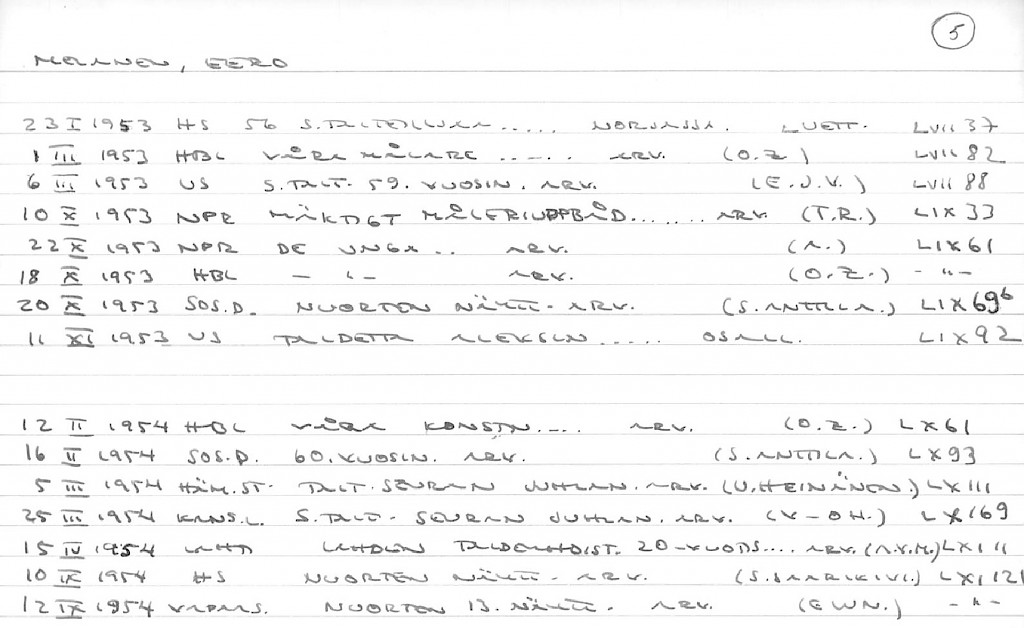 5
MOLANEN, EERO
23 I 1953 HS 56 S.TAITEILIJAA ..... NORJASSA. LUETT. LVII 37
1 III 1953 HBL VÅRA MÅLARE ..... ARV. (O.Z.) LVII 82
6 III 1953 US S.TAIT. 59. VUOSIN. ARV. (E.J.V.) LVII 88
10 X 1953 NPR MÄKTIGT MÅLERIUPPBÅD ...... ARV. (T.R.) LIX 33
22 X 1953 NPR DE UNGA .. ARV. (A.) LIX 61
18 X 1953 HBL - " - ARV. (O.Z.) - " -
20 X 1953 SOS.D. NUORTEN NÄYTT. ARV. (S.ANTTILA.) LIX 69b
11 XI 1953 US TAIDETTA ALEKSIN ..... OSALL. LIX 92
12 II 1954 HBL VÅRA KONSTN.... ARV. (O.Z.) LX 61
16 II 1954 SOS.D. 60. VUOSIN. ARV. (S.ANTTILA.) LX 93
5 III 1954 HÄM.ST. TAIT.SEURAN JUHLAN. ARV. (U.HEINÄNEN.) LX 111
25 III 1954 KANS.L. S.TAIT. SEURAN JUHLAN. ARV. (V-OH.) LX 169
15 IV 1954 LAHTI LAHDEN TAIDEYHDIST. 20-VUOTS.... ARV. (A.V.M.) LXI 11
10 IX 1954 HS NUORTEN NÄYTT. ARV. (S.SAARIKIVI.) LXI 121
12 IX 1954 VAPAUS. NUORTEN 13. NÄYTT. ARV. (EWN.) - " -